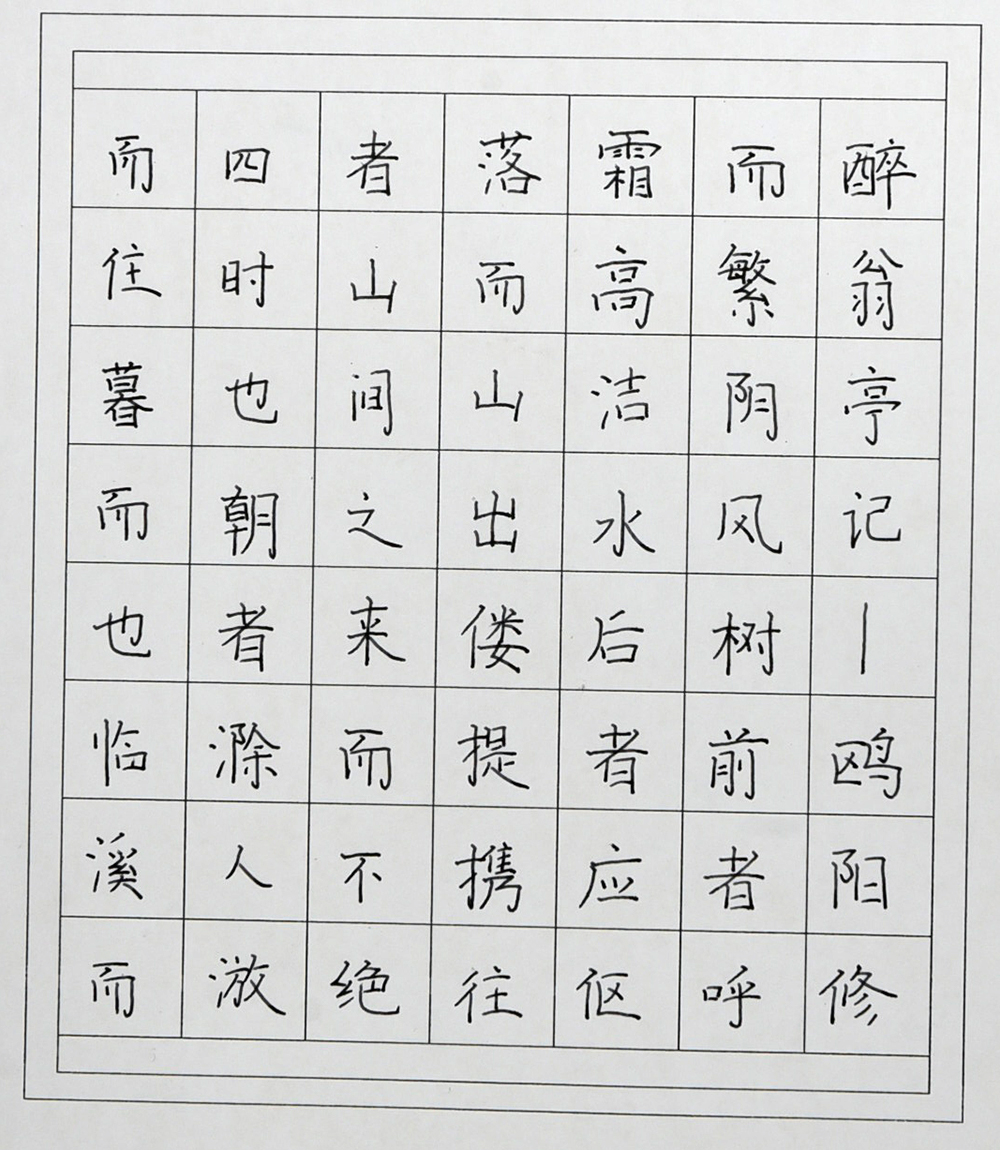 醉翁亭记丨鸥阳修
而繁阴风树前者呼
霜高洁水后者应伛
落而山出偻提携往
者山间之来而不绝
四时也朝者滁人游
而住暮而也临溪而